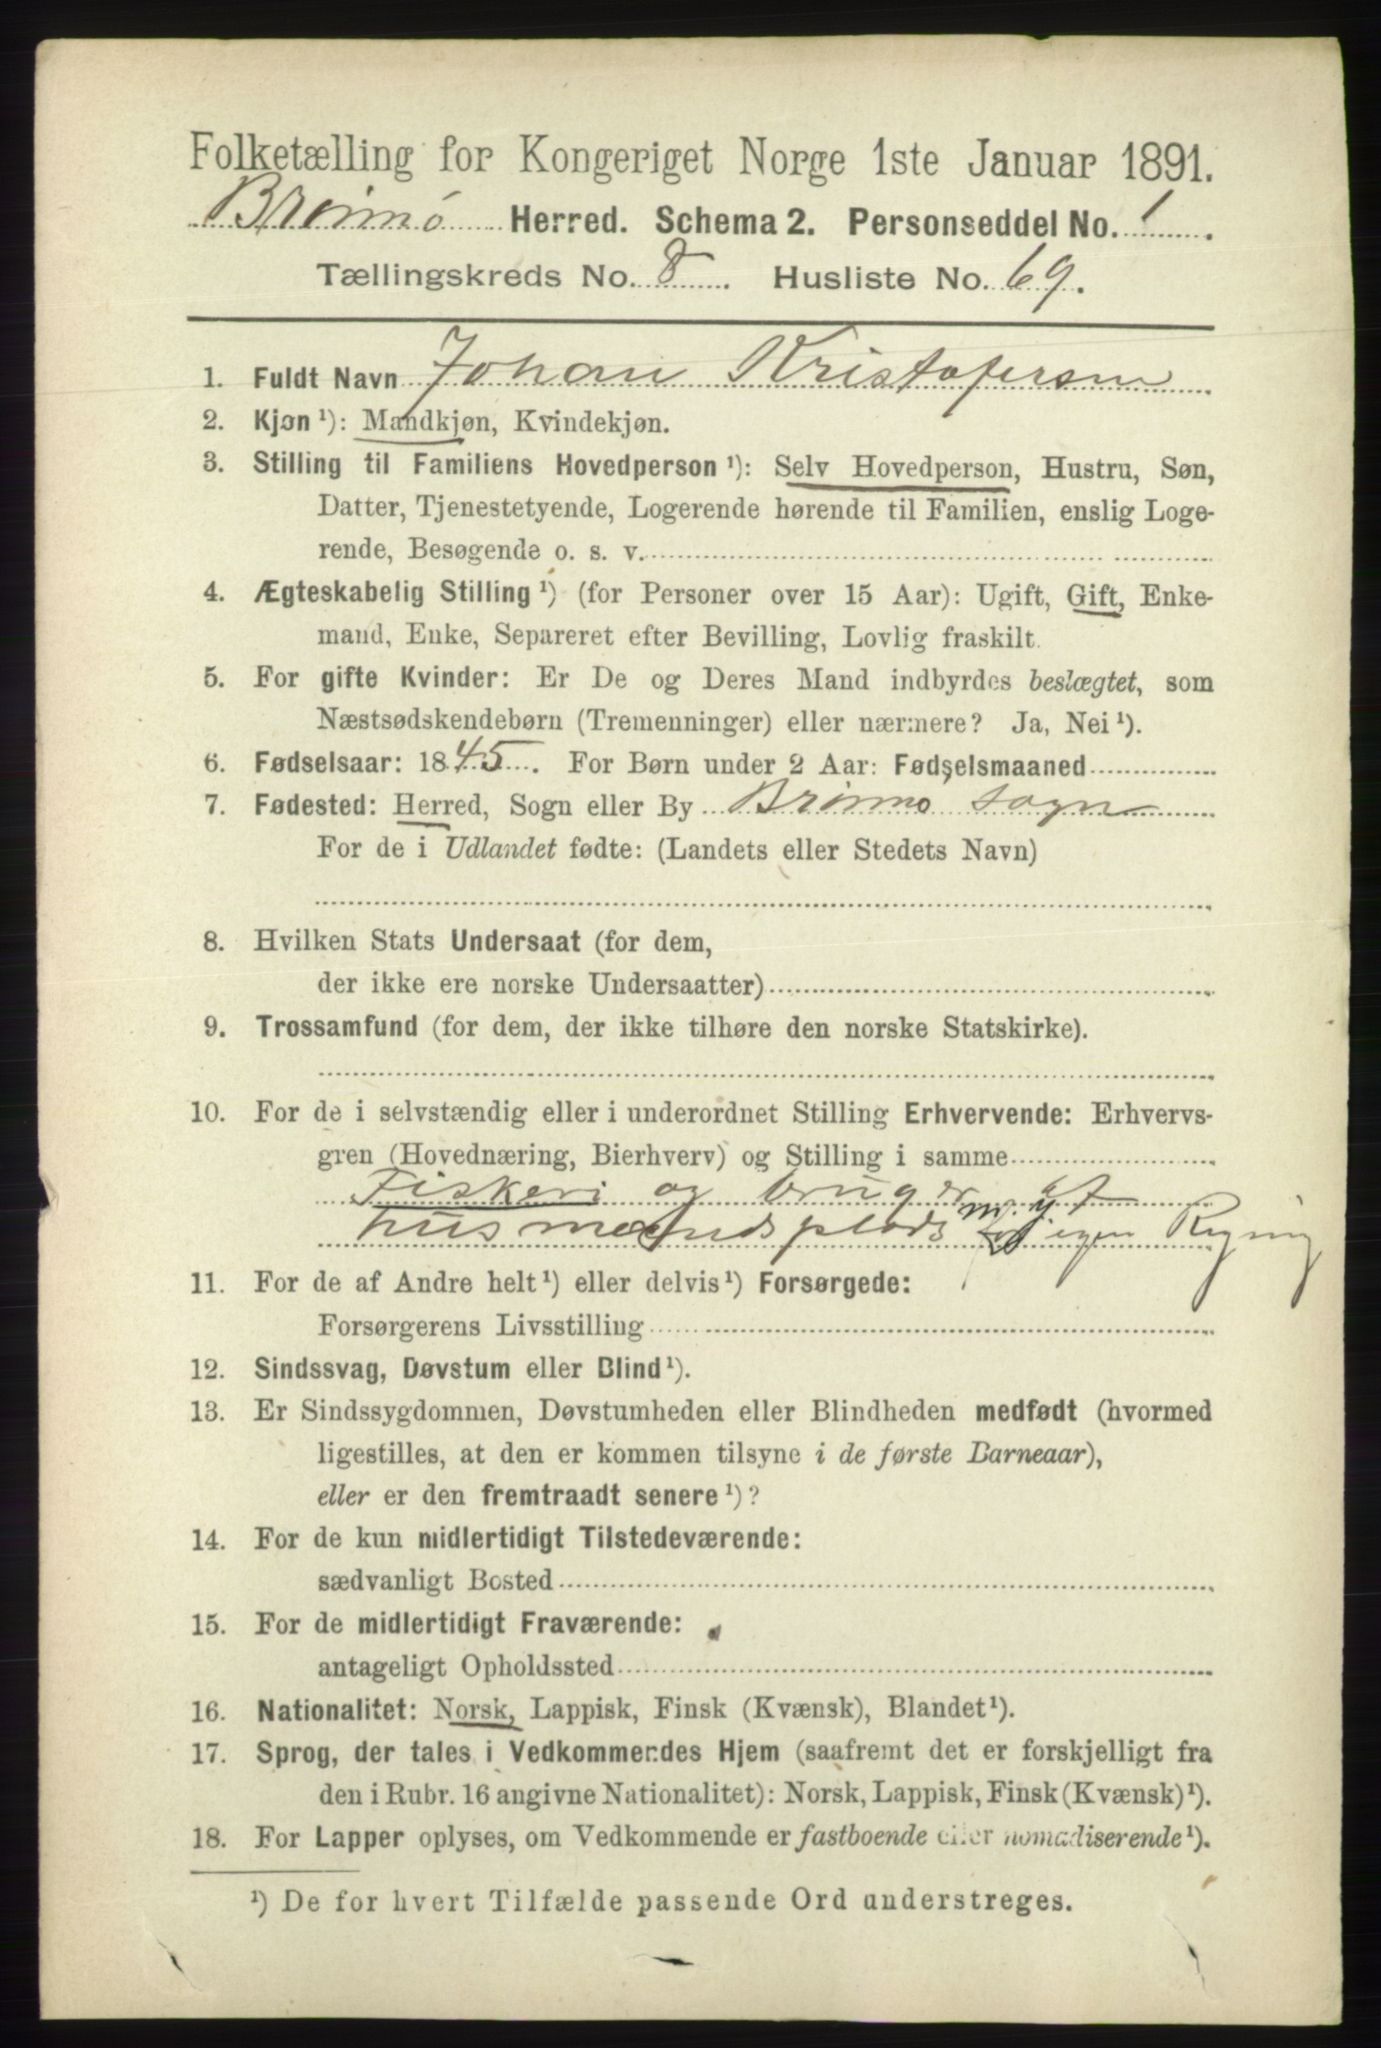 Folketælling for Kongeriget Norge 1ste Januar 1891.
Brønnø Herred. Schema 2. Personseddel No. 1
Tællingskreds No. 8. Husliste No. 69.
1. Fuldt Navn Johan Kristofersen
2. Kjøn ¹): Mandkjøn, Kvindekjøn.
3. Stilling til Familiens Hovedperson ¹): Selv Hovedperson, Hustru, Søn,
Datter, Tjenestetyende, Logerende hørende til Familien, enslig Loge-
rende, Besøgende o. s. v.
4. Ægteskabelig Stilling ¹) (for Personer over 15 Aar): Ugift, Gift, Enke-
mand, Enke, Separeret efter Bevilling, Lovlig fraskilt.
5. For gifte Kvinder: Er De og Deres Mand indbyrdes beslægtet, som
Næstsødskendebørn (Tremenninger) eller nærmere? Ja, Nei ¹).
6. Fødselsaar: 1845. For Børn under 2 Aar: Fødselsmaaned
7. Fødested: Herred, Sogn eller By Brønnø sogn
For de i Udlandet fødte: (Landets eller Stedets Navn)
8. Hvilken Stats Undersaat (for dem,
der ikke ere norske Undersaatter)
9. Trossamfund (for dem, der ikke tilhøre den norske Statskirke).
10. For de i selvstændig eller i underordnet Stilling Erhvervende: Erhvervs-
gren (Hovednæring, Bierhverv) og Stilling i samme
Fiskeri og bruger af
husmandsplads m. j. egen Regning
11. For de af Andre helt ¹) eller delvis ¹) Forsørgede:
Forsørgerens Livsstilling
12. Sindssvag, Døvstum eller Blind ¹).
13. Er Sindssygdommen, Døvstumheden eller Blindheden medfødt (hvormed
ligestilles, at den er kommen tilsyne i de første Barneaar),
eller er den fremtraadt senere ¹)?
14. For de kun midlertidigt Tilstedeværende:
sædvanligt Bosted
15. For de midlertidigt Fraværende:
antageligt Opholdssted
16. Nationalitet: Norsk, Lappisk, Finsk (Kvænsk), Blandet ¹).
17. Sprog, der tales i Vedkommendes Hjem (saafremt det er forskjelligt fra
den i Rubr. 16 angivne Nationalitet): Norsk, Lappisk, Finsk (Kvænsk) ¹).
18. For Lapper oplyses, om Vedkommende er fastboende eller nomadiserende ¹).
¹) De for hvert Tilfælde passende Ord understreges.